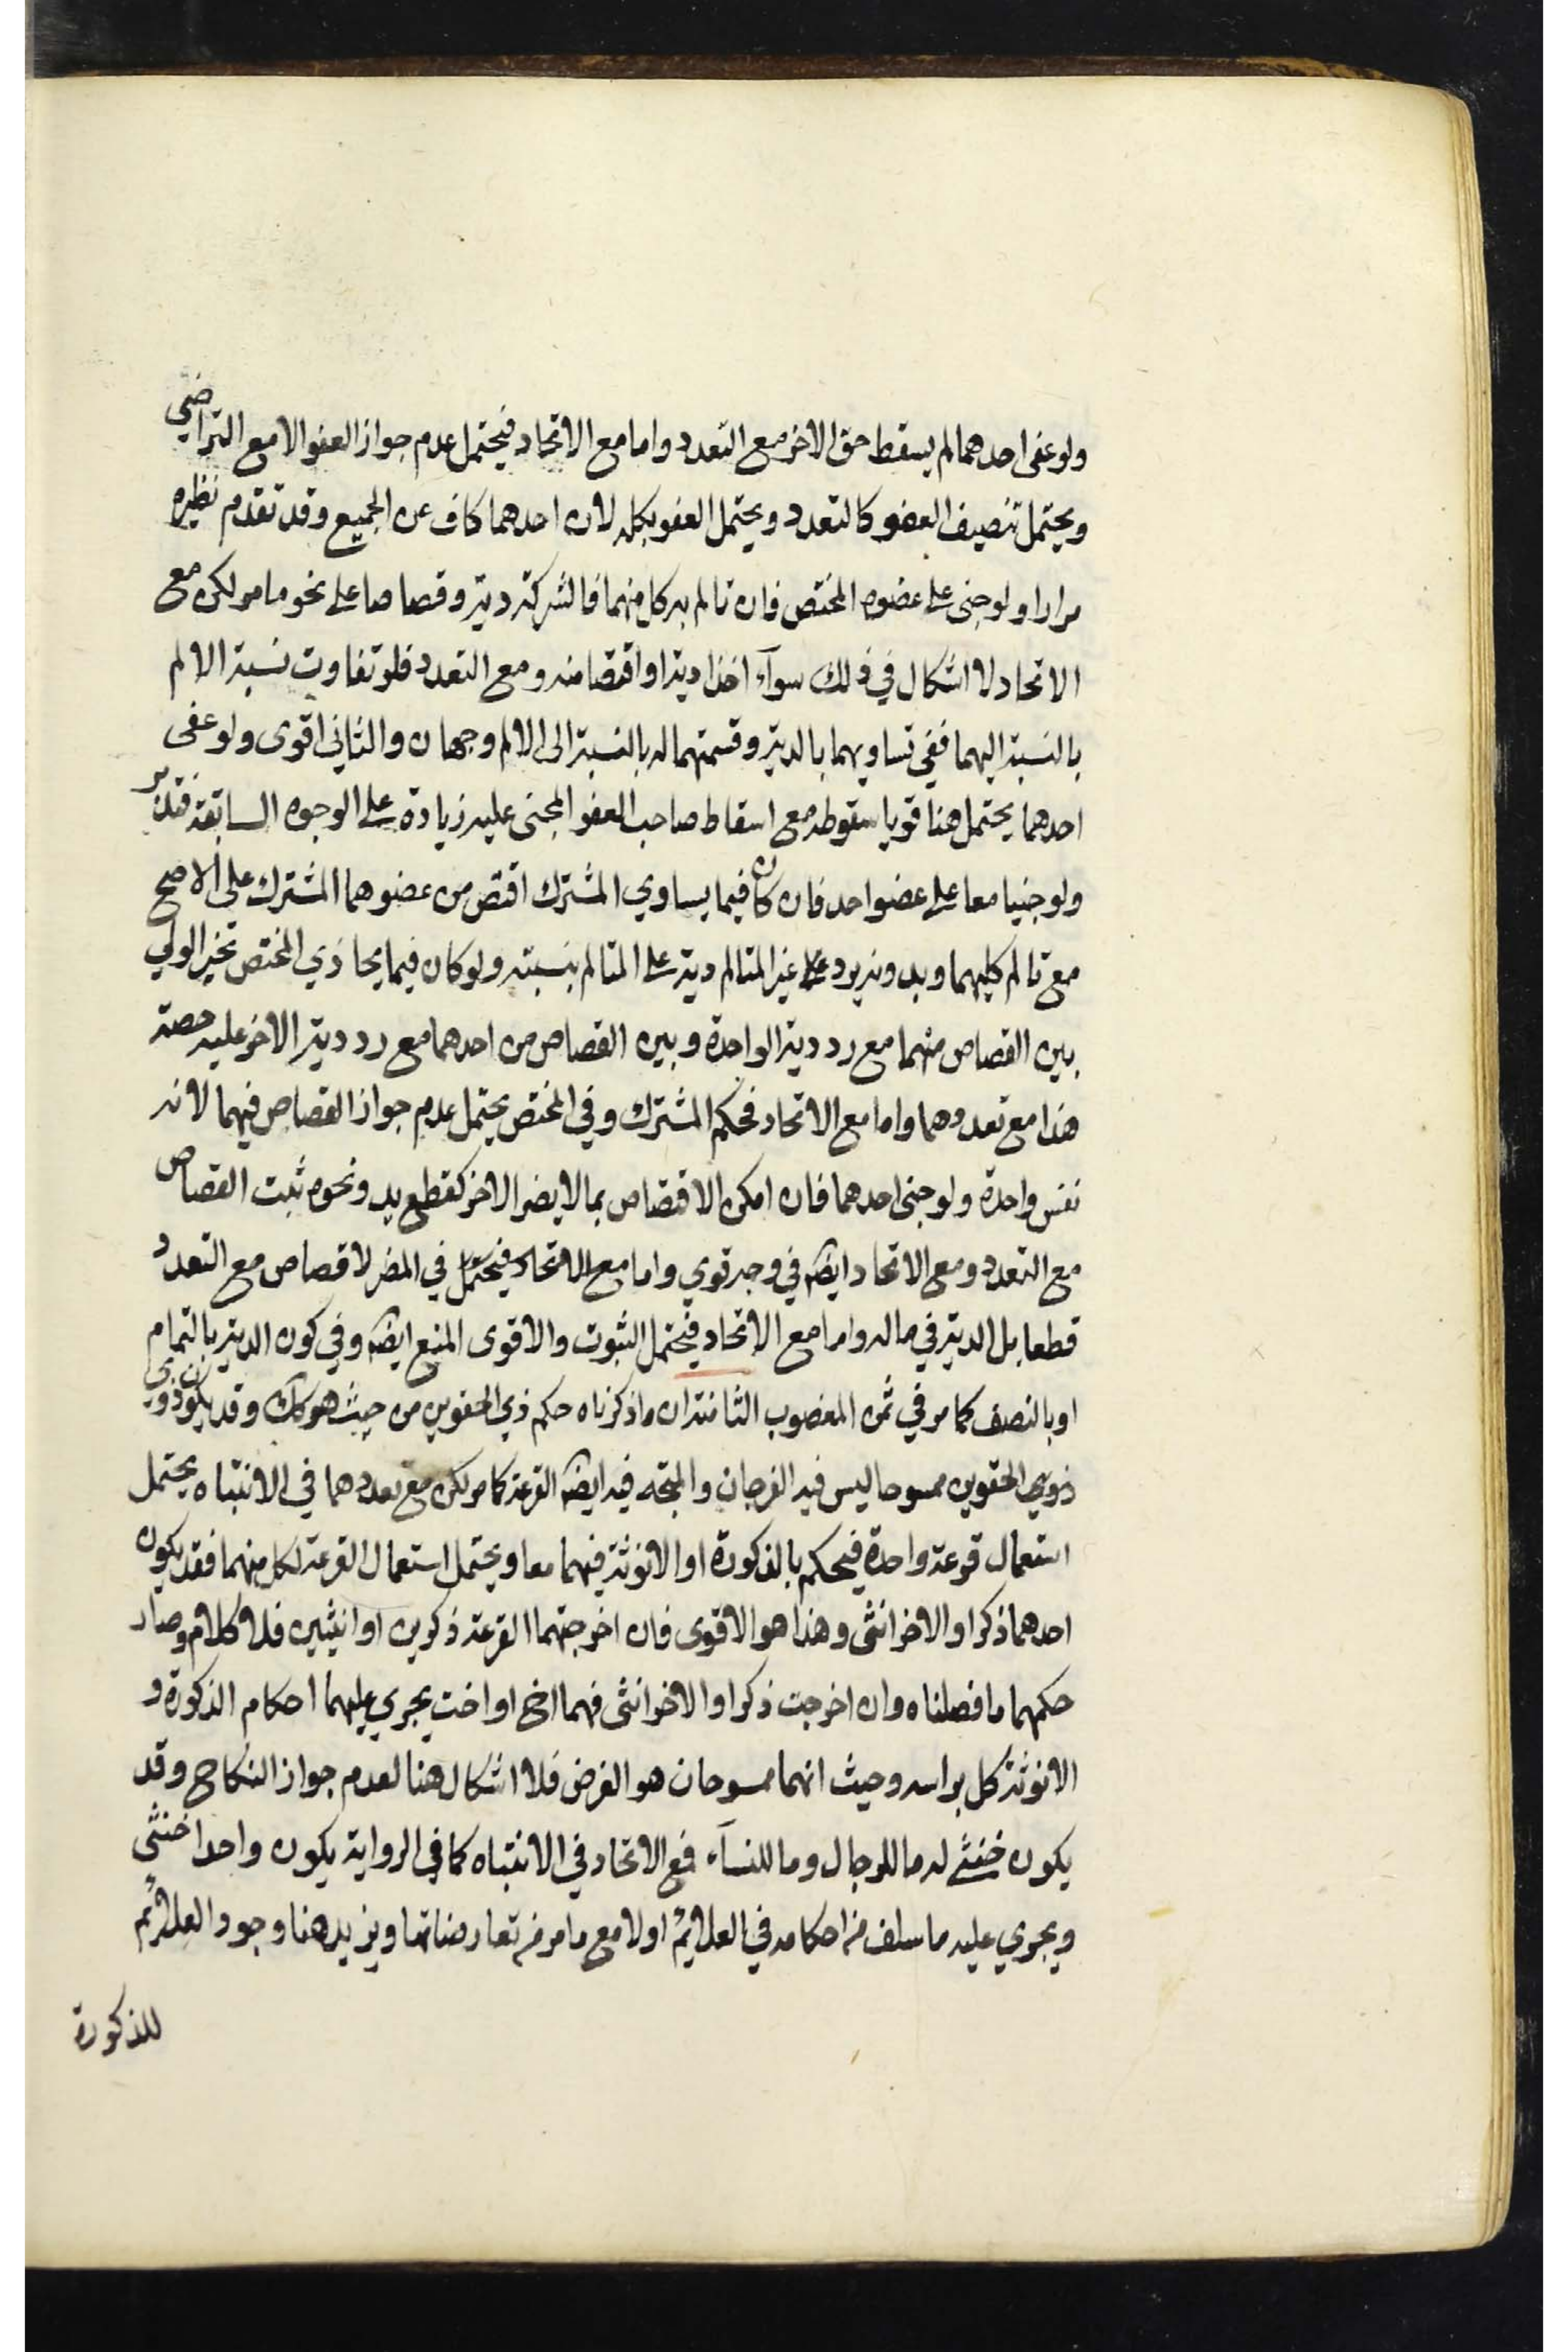 ولو عفى احدهما لم يسقط حق الاخر مع التعدد واما مع الاتحاد فيحتمل عدم جواز العفو الا مع التراضي
ويحتمل تنصيف العضو كالتعدد ويحتمل العفو بكله لان احدهما كاف عن الجميع وقد تقدم نظيره
مرارا ولو جنى على عضوه المختص فان تالم به كل منهما فالشركة دية وقصاصا على نحو ما مر لكن مع
الاتحاد لا اشكال في ذلك سوآء اخذا دية او اقتصا منه ومع التعدد فلو تفاوت نسبة الالم
بالنسبة اليهما ففي تساويهما بالدية وقسمتهما له بالنسبة الى الالم وجهان والثاني اقوى ولو عفى
احدهما يحتمل هنا قويا سقوطه مع اسقاط صاحب العفو المجنى عليه زيادة على الوجوه السابقة فتدبر
ولو جنيا معا على عضو احد فان كان فيما يساوي المشترك اقتص من عضوهما المشترك على الاصح
مع تالم كليهما وبدونه يرد على غير المتالم دية على المتالم بنسبته ولو كان فيما يحاذي المختص تخير الولي
بين القصاص منهما مع رد دية الواحدة وبين القصاص من احدهما مع رد دية الاخر عليه حصته
هذا مع تعددهما واما مع الاتحاد فحكم المشترك وفي المختص يحتمل عدم جواز القصاص فيهما لانه
نفس واحدة ولو جنى احدهما فان امكن الاقتصاص بما لا يضر الاخر كقطع يد ونحوه ثبت القصاص
مع التعدد ومع الاتحاد ايضه في وجه قوي واما مع الاتحاد فيحتمل في المضر لا قصاص مع التعدد
قطعا بل الدية في ماله واما مع الاتحاد فيحتمل الثبوت والاقوى المنع ايضه وفي كون الدية بالتمام
او بالنصف كما مر في ثمن المغصوب الثامنة ان ما ذكرناه حكم ذي الحقوين من حيث هو كك وقد يكون ذوي
ذوي الحقوين ممسوحا ليس فيه الفرجان والمتجه فيه ايضه القرعة كما مر لكن مع تعددهما في الانتباه يحتمل
استعمال قرعة واحدة فيحكم بالذكورة او الانوثة فيهما معا ويحتمل استعمال القرعة لكل منهما فقد يكون
احدهما ذكرا والاخر انثى وهذا هو الاقوى فان اخرجتهما القرعة ذكرين او انثيين فلا كلام وصار
حكمهما ما فصلناه وان اخرجت ذكرا والاخر انثى فهما اخ او اخت يجري عليهما احكام الذكورة و
الانوثة كل براسه وحيث انهما ممسوحان هو الفرض فلا اشكال هنا لعدم جواز النكاح وقد
يكون خنثى له ما للرجال وما للنسآء فمع الاتحاد في الانتباه كما في الرواية يكون واحدا خنثى
ويجري عليه ما سلف من احكامه في العلائم اولا مع ما مر من تعارضاتها ويزيد هنا وجود العلائم
للذكورة